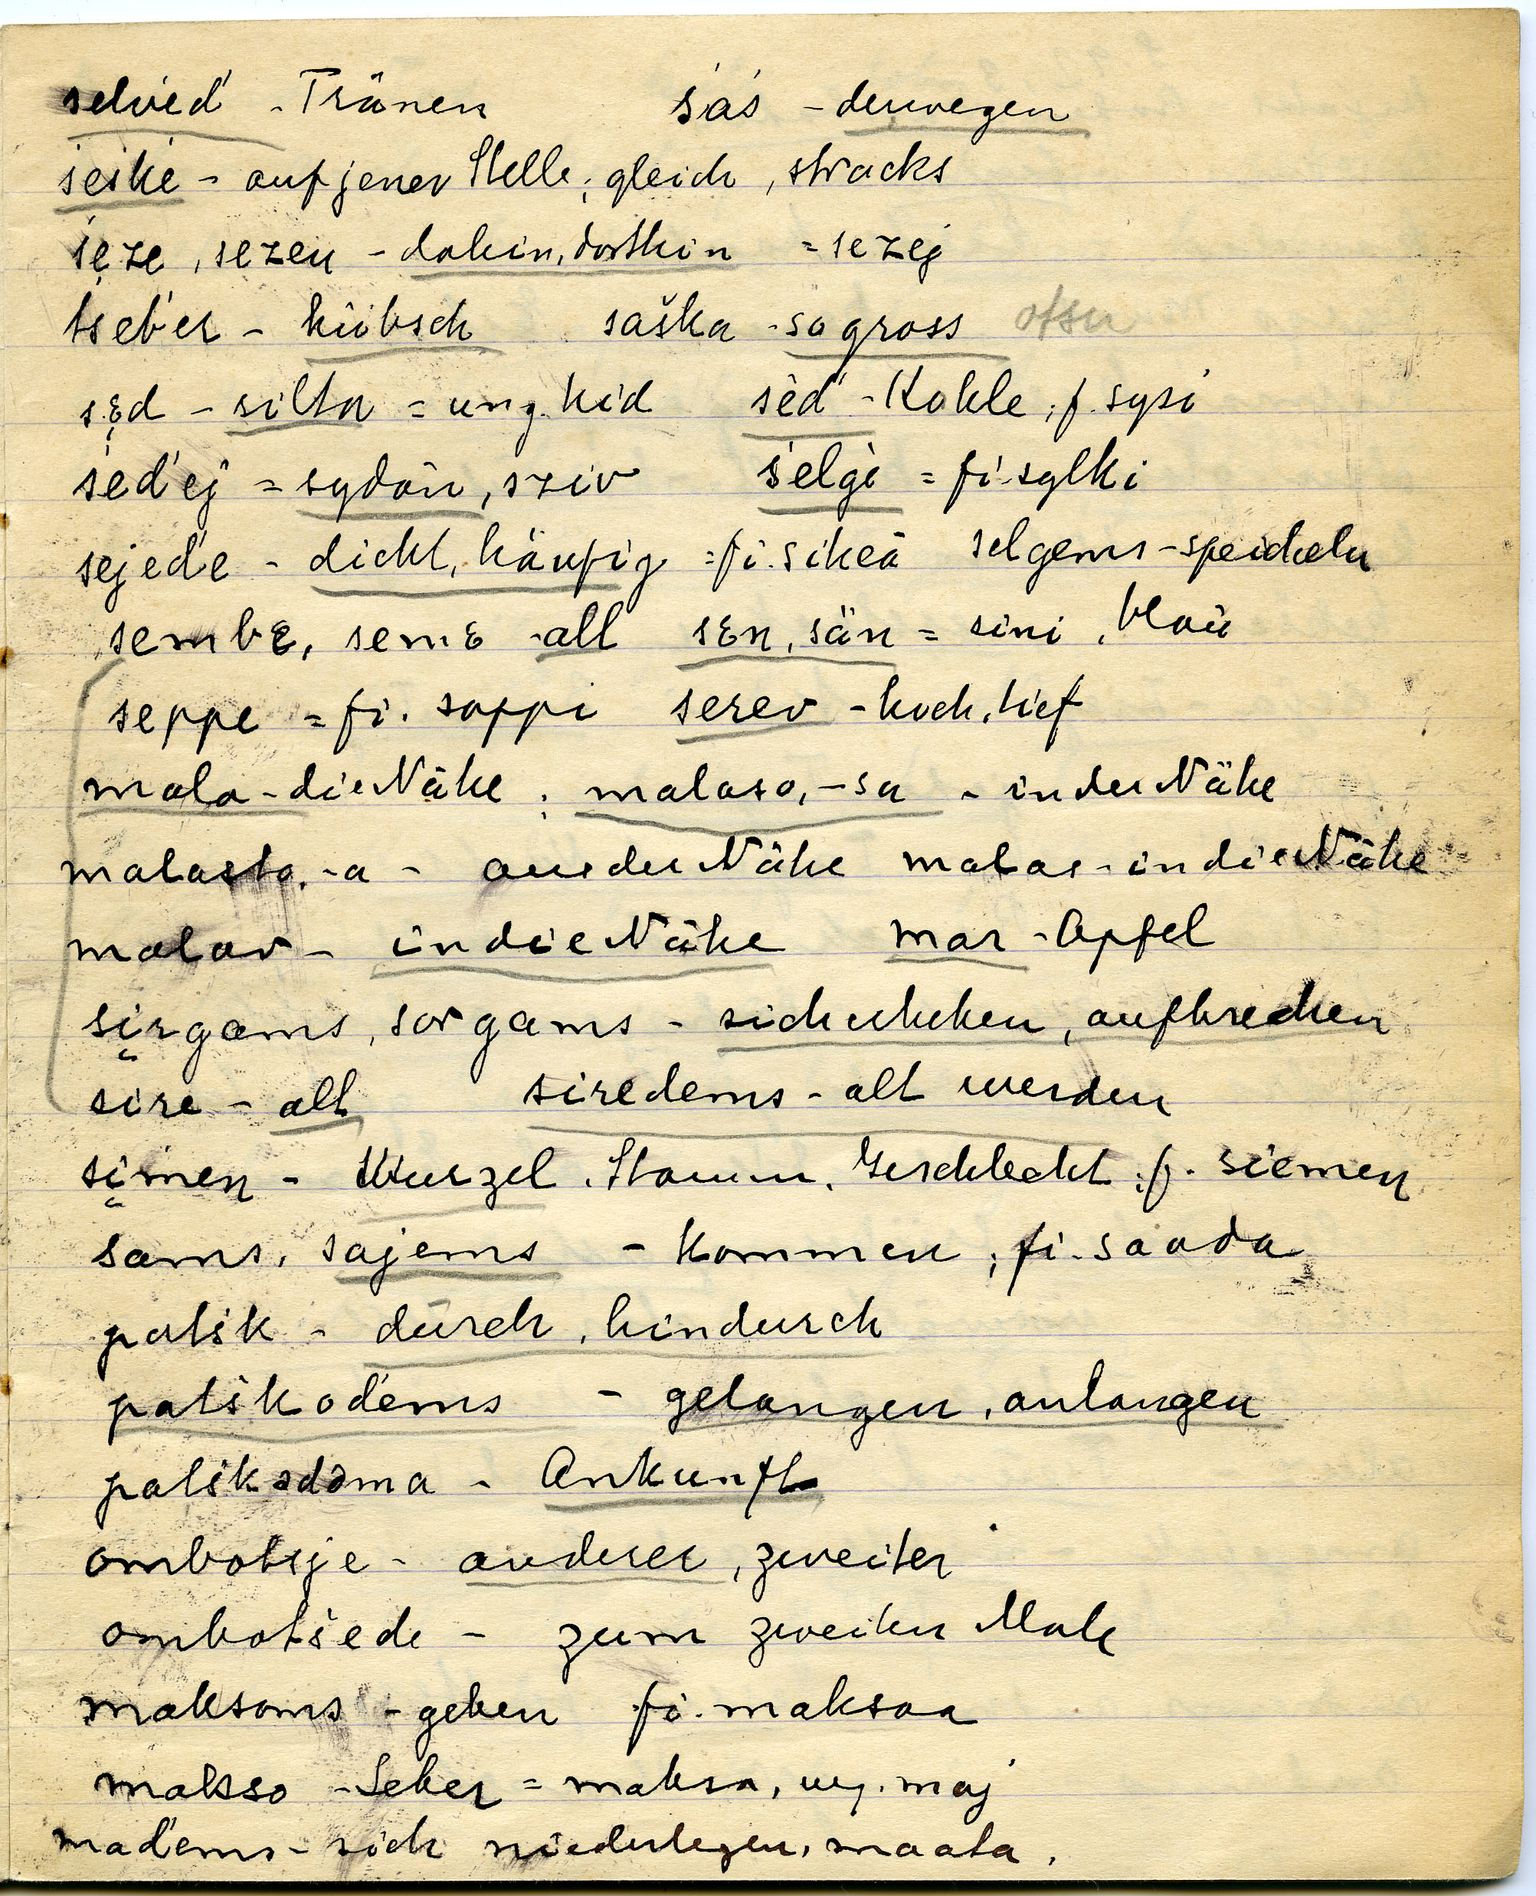 selved' - Tränen śaś - deswegen
śeske - auf jener Stelle; gleich, stracks
śeze, sezen - dahin, dorthin = sezej
tseb'er - hübsch saška - so gross
sɛd - silta = ung. hid śed' - Kohle; f. sysi
śed'ej = sydän, sziv śelgi = fi. sylki
sejed'e - dicht, häufig = fi. sikeä selgems - speicheln
sembɛ, semɛ - all sɛn, sän = sini, blau
seppe = fi. sappi serev - hoch, tief
mala - die Nähe; malaso, -sa - in der Nähe
malasto, -a - aus der Nähe malas - in die Nähe
malav - in die Nähe mar - Apfel
sirgams, sorgams - sich erheben, aufbrechen
sire - alt siredems - alt werden
simen - Wurzel, Stamm, Geschlecht; f. siemen
sams, sajems - kommen; fi. saada
patśk - durch, hindurch
patśkod'ems - gelangen, anlangen
patśkədəma - Ankunft
ombotsje - anderer, zweiter
ombotśede - zum zweiten Male
maksoms - geben fi. maksaa
makso - Leber = maksa, ung. maj
mad'ems - sich niederlegen, maata.